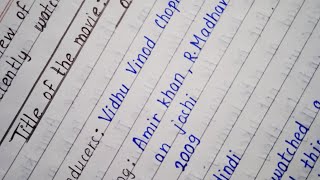 iew of
cently watch
Title of the movie:-
oducers: Vidhu Vinod Chop
ng: Amir khan, R. Madhav
an joshi
2009
indi
watched a
this